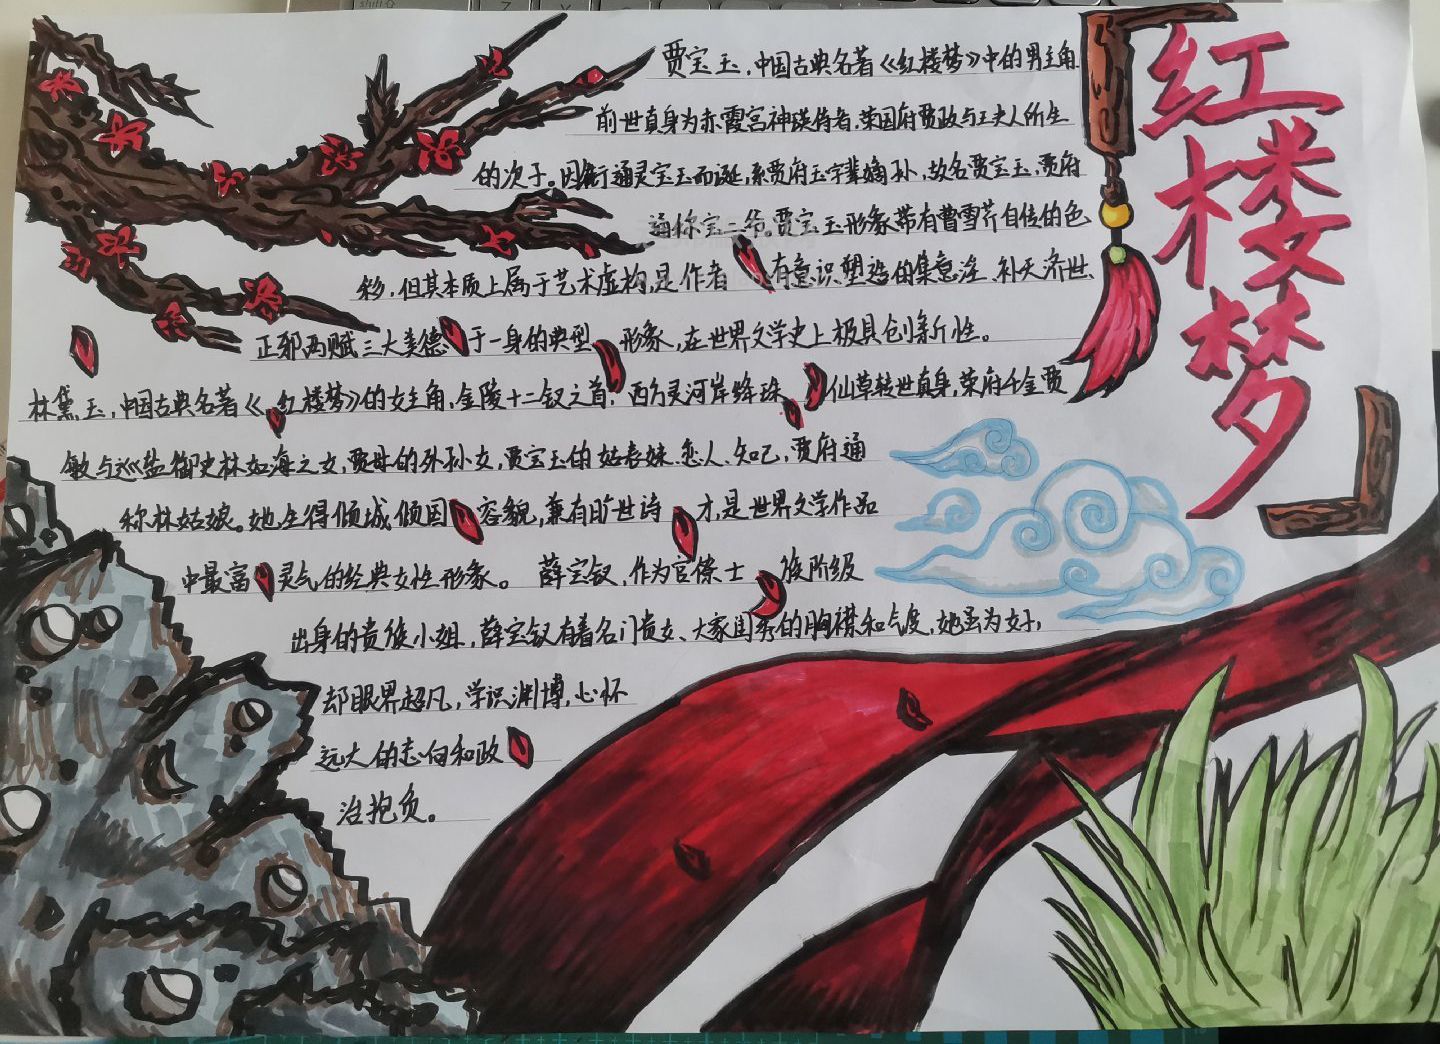 红楼梦
贾宝玉,中国古典名著《红楼梦》中的男主角
前世真身为赤霞宫神瑛侍者,荣国府贾政与王夫人所生
的次子。因衔通灵宝玉而诞,系贾府玉字辈嫡孙,故名贾宝玉,贾府
通称宝二爷。贾宝玉形象带有曹雪芹自传的色
彩,但其本质上属于艺术虚构,是作者有意识塑造的集意淫、补天济世、
正邪两赋三大美德于一身的典型形象,在世界文学史上极具创新性。
林黛玉,中国古典名著《红楼梦》的女主角,金陵十二钗之首,西方灵河岸绛珠仙草转世真身,荣府千金贾
敏与巡盐御史林如海之女,贾母的外孙女,贾宝玉的姑表妹、恋人、知己,贾府通
称林姑娘。她生得倾城倾国容貌,兼有旷世诗才,是世界文学作品
中最富灵气的经典女性形象。 薛宝钗,作为官僚士族阶级
出身的贵族小姐,薛宝钗有着名门贵女、大家闺秀的胸襟和气度,她虽为女子,
却眼界超凡,学识渊博,心怀
远大的志向和政
治抱负。